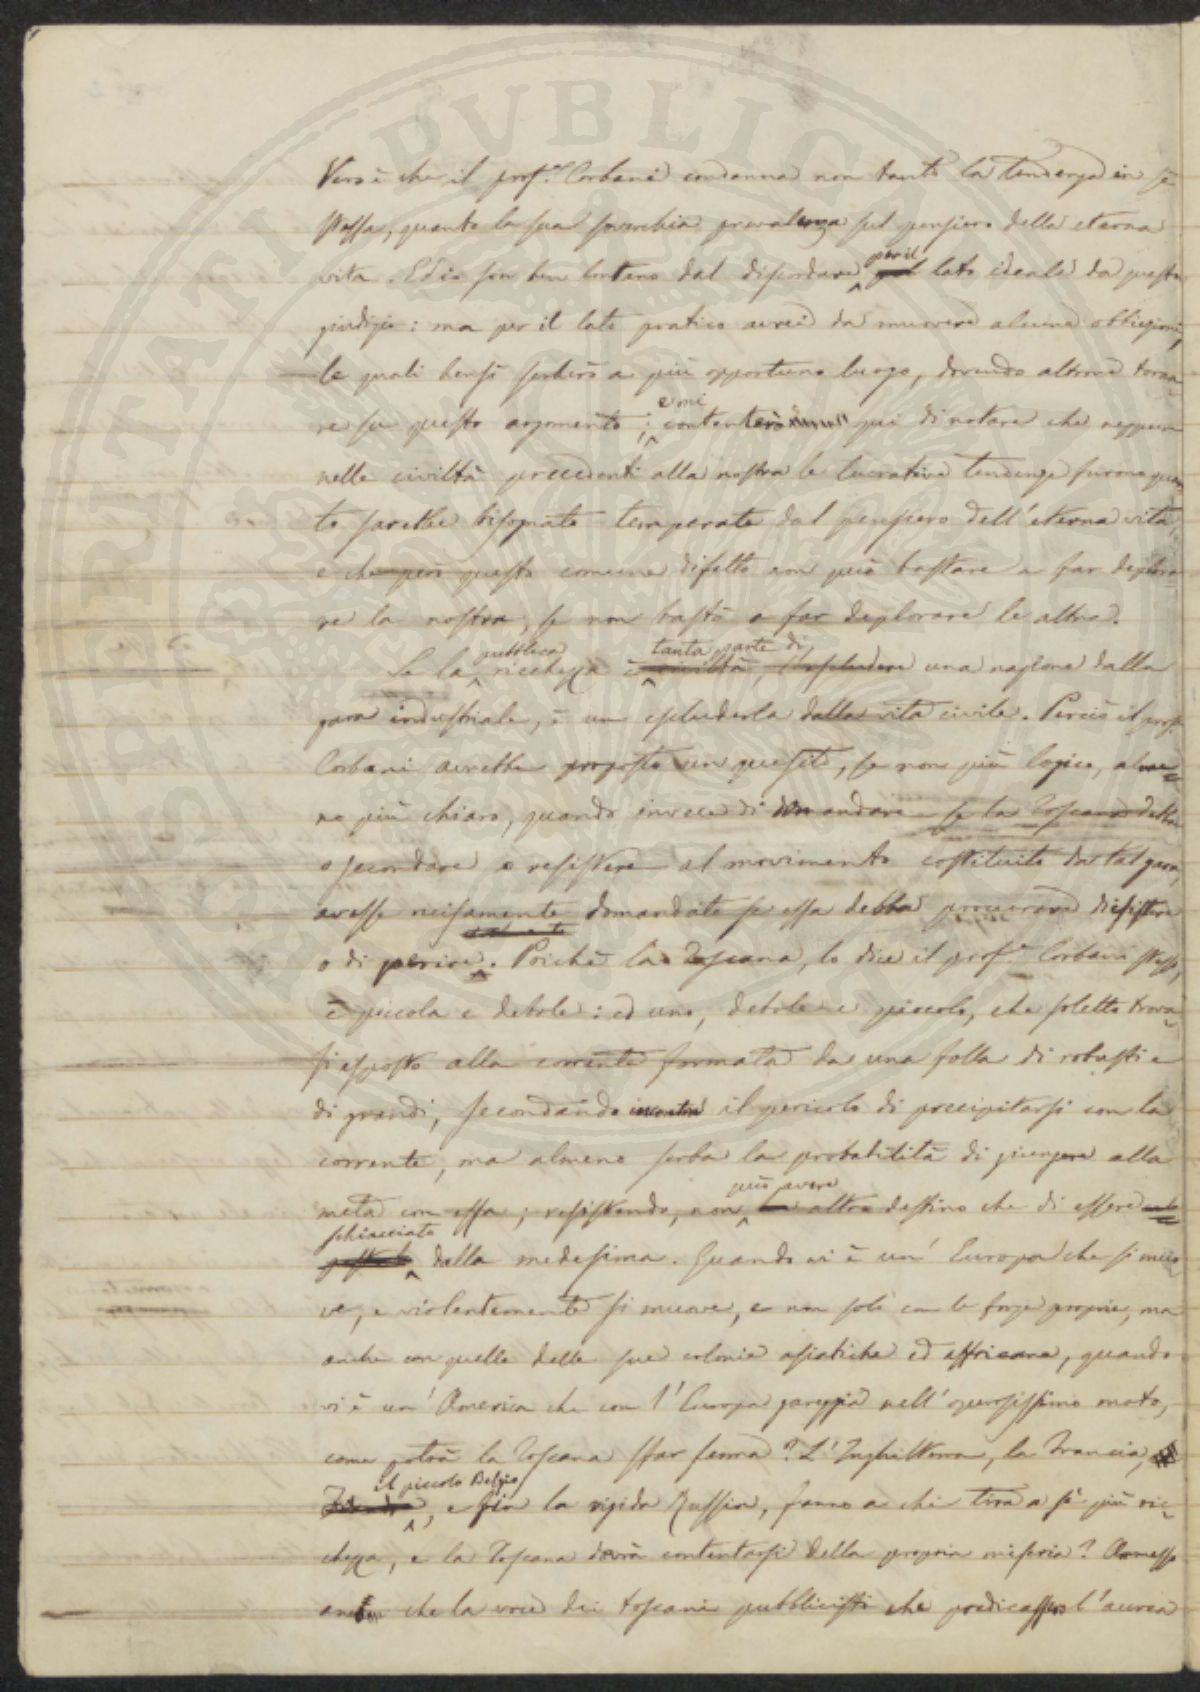 Vero è che il prof.r Corbani condanna non tanto la tendenza in sè
stessa, quanto la sua soverchia prevalenza sul pensiero della eterna
vita. Ed io son ben lontano dal discordare per il lato ideale da questo
giudizio: ma per il lato pratico avrei da muovere alcune obbiezioni,
le quali bensì serberò a più opportuno luogo, dovendo altrove torna-
re su questo argomento; e mi contenterò qui di notare che neppure
nelle civiltà precedenti alla nostra le lucrative tendenze furono quan-
to sarebbe bisognato temperate dal pensiero dell'eterna vita
e che però questo comune difetto non può bastare a far deplora-
re la nostra, se non bastò a far deplorare le altre.
Se la pubblica ricchezza è tanta parte di civiltà, l'escludere una nazione dalla
gara industriale, è un escluderla dalla vita civile. Perciò il prof.
Corbani avrebbe proposto un quesito, se non più logico, alme-
no più chiaro, quando invece di domandare se la Toscana debba
o secondare o resistere al movimento costituito da tal gara,
avesse ricisamente domandato se essa debba procurare di esistere
o di perire. Poichè la Toscana, lo dice il prof.r Corbani stesso,
è piccola e debole: ed uno, debole e piccolo, che soletto trova-
si esposto alla corrente formata da una folla di robusti e
di grandi, secondando incontra il pericolo di precipitarsi con la
corrente, ma almeno serba la probabilità di giungere alla
meta con essa; resistendo, non può avere altro destino che di essere
schiacciato dalla medesima. Quando vi è un' Europa che si muo-
ve, e violentemente si muove, e non solo con le forze proprie, ma
anche con quelle delle sue colonie asiatiche ed affricane, quando
vi è un' America che con l' Europa gareggia nell' operosissimo moto,
come potrà la Toscana star ferma? L' Inghilterra, la Francia,
il piccolo Belgio, e fin la rigida Russia, fanno a chi tira a sè più ric-
chezza, e la Toscana dovrà contentarsi della propria miseria? Ammesso
che la voce dei toscani pubblicisti che predicasser l'aurea